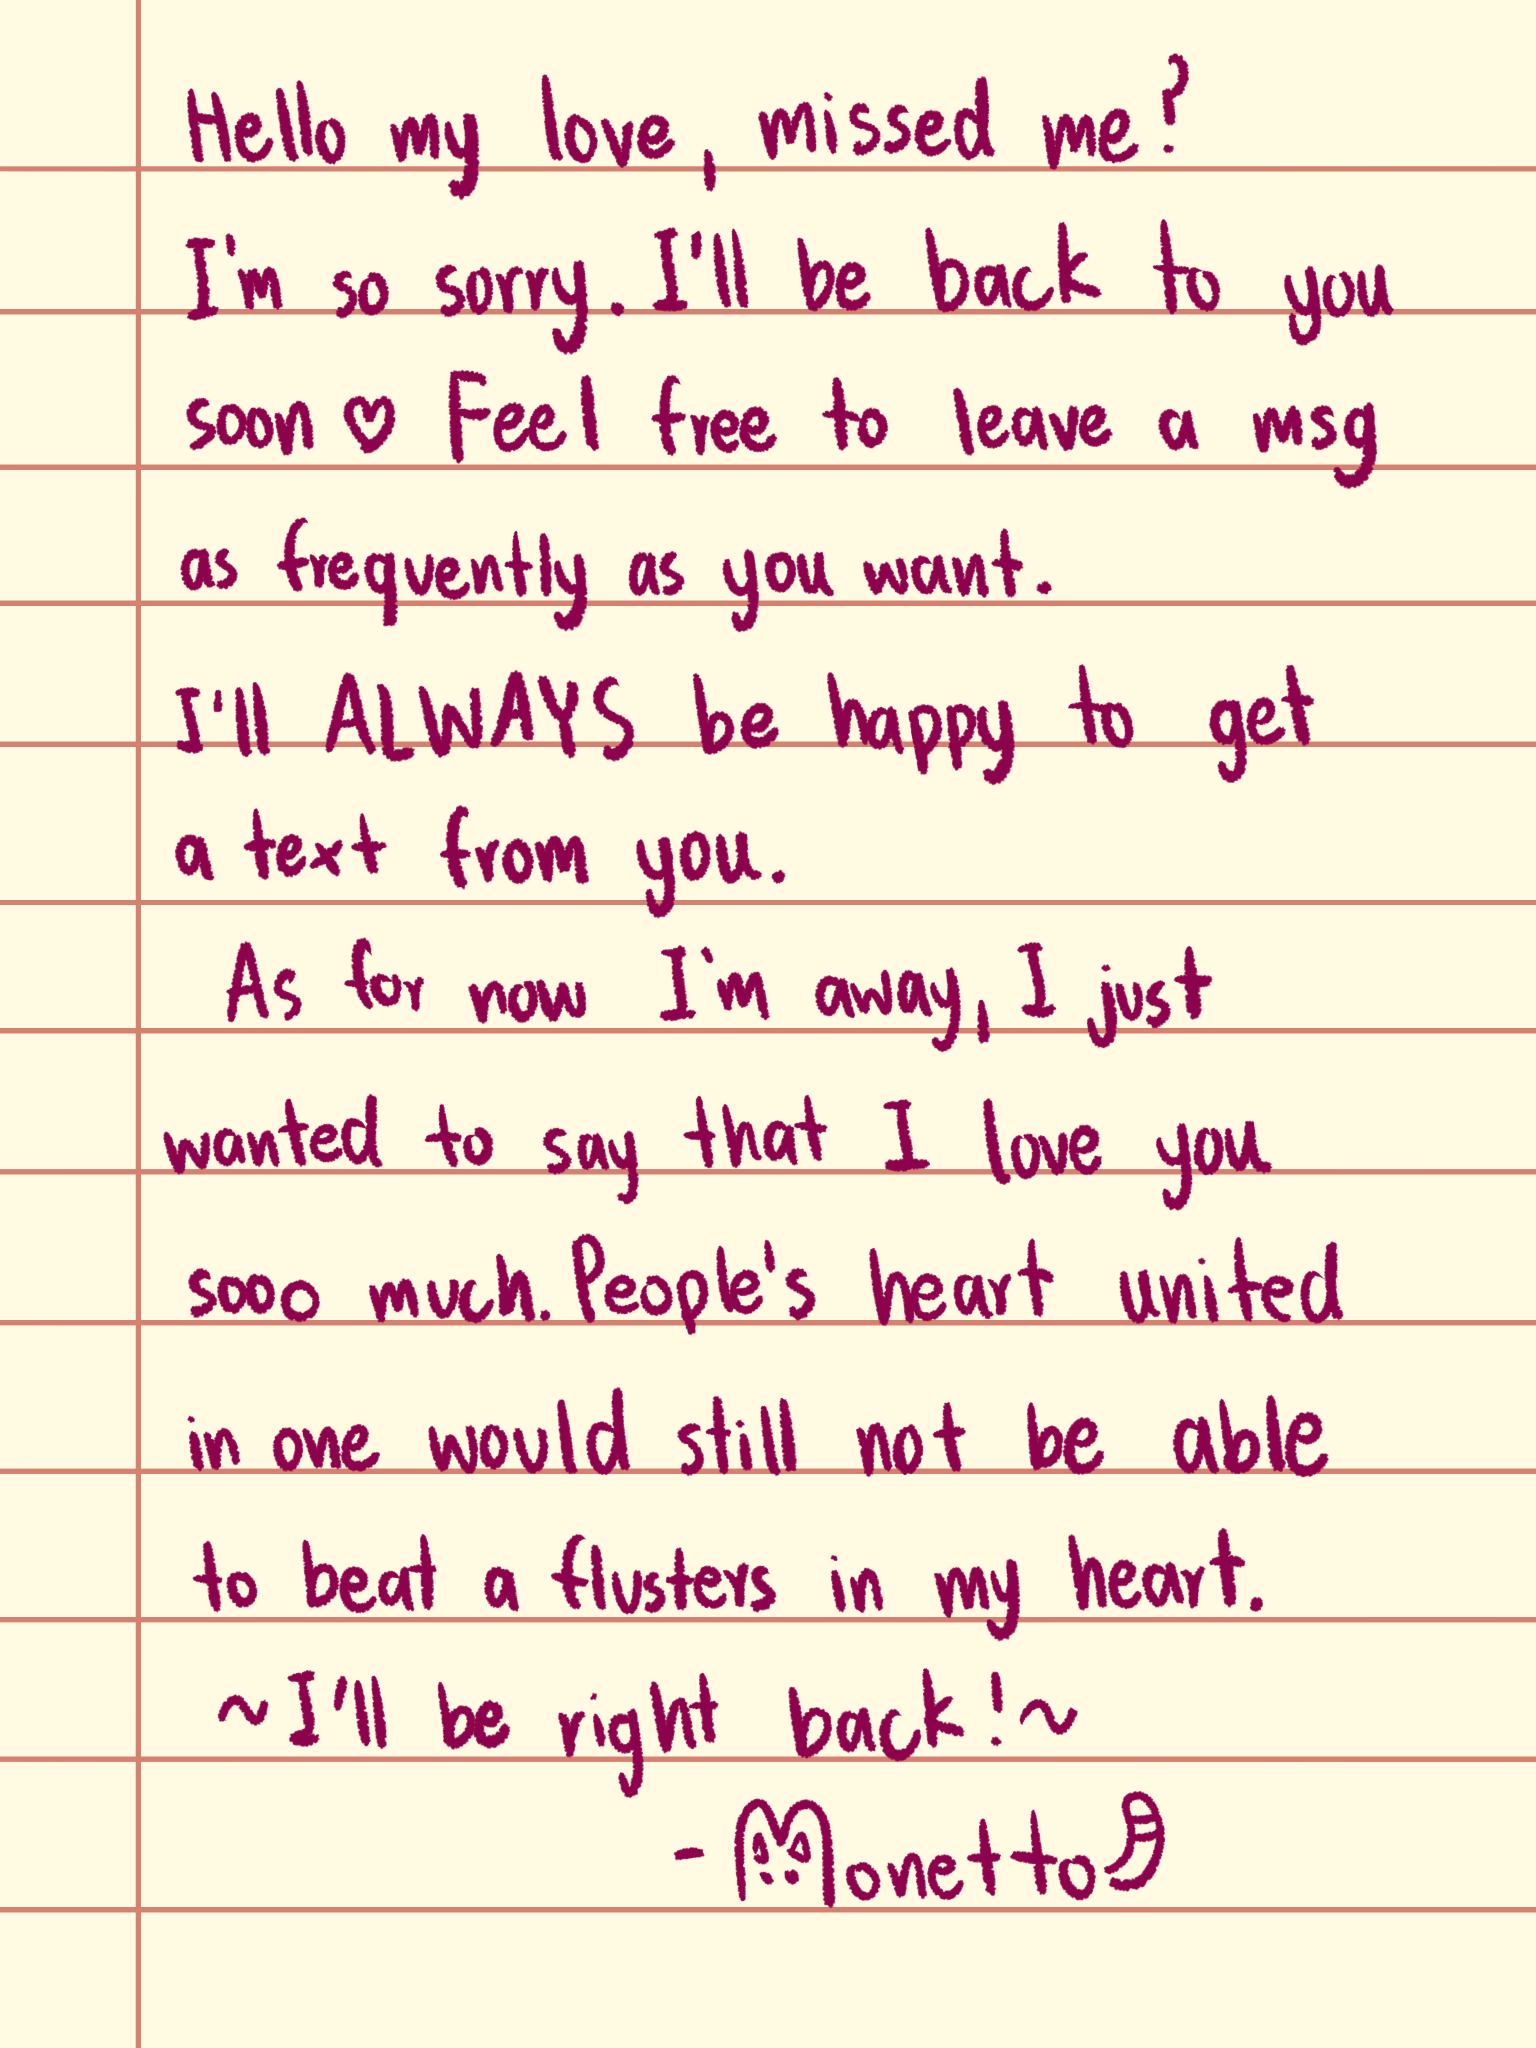 Hello my love, missed me?
I'm so sorry. I'll be back to you
soon ♡ Feel free to leave a msg
as frequently as you want.
I'll ALWAYS be happy to get
a text from you.
As for now I'm away, I just
wanted to say that I love you
sooo much. People's heart united
in one would still not be able
to beat a flusters in my heart.
~I'll be right back!~
- Monetto